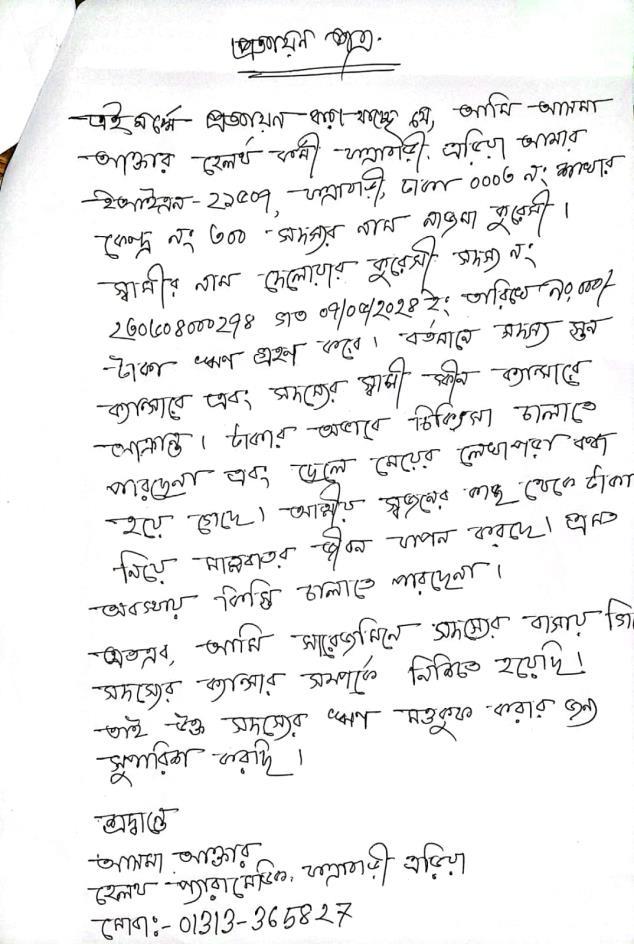 প্রত্যয়ন পত্র।
এই মর্মে প্রত্যয়ন করা যাচ্ছে যে, আমি আসমা
আক্তার হেলথ কর্মী যাত্রাবাড়ী এরিয়া আমার
ইআইএন - ২১৫০৭, যাত্রাবাড়ী, ঢাকা ০০০৩ নং শাখার
কেন্দ্র নং ৩০০ সদস্যর নাম নাজমা কুরেসী।
স্বামীর নাম দেলোয়ার কুরেসী সদস্য নং
২৬০৫০৪০০০২৭৪ গত ০৭/০৫/২০২৪ ইং তারিখে ৭০,০০০/
টাকা ঋণ গ্রহন করে। বর্তমানে সদস্য স্তন
ক্যান্সারে এবং সদস্যের স্বামী স্কীন ক্যান্সারে
আক্রান্ত। টাকার অভাবে চিকিৎসা চালাতে
পারছেনা এবং ছেলে মেয়ের লেখাপরা বন্ধ
হয়ে গেছে। আত্মীয় স্বজনের কাছ থেকে টাকা
নিয়ে মানবেতর জীবন যাপন করছে। এমত
অবস্থায় কিস্তি চালাতে পারছেনা।
অতএব, আমি সারেজমিনে সদস্যের বাসায় গি
সদস্যের ক্যান্সার সম্পর্কে নিশ্চিত হয়েছি।
তাই উক্ত সদস্যের ঋণ মওকুফ করার জন্য
সুপারিশ করছি।
শ্রদ্ধান্তে
আসমা আক্তার
হেলথ প্যারামেডিক, যাত্রাবাড়ী এরিয়া
মোবা:- 01313-365827